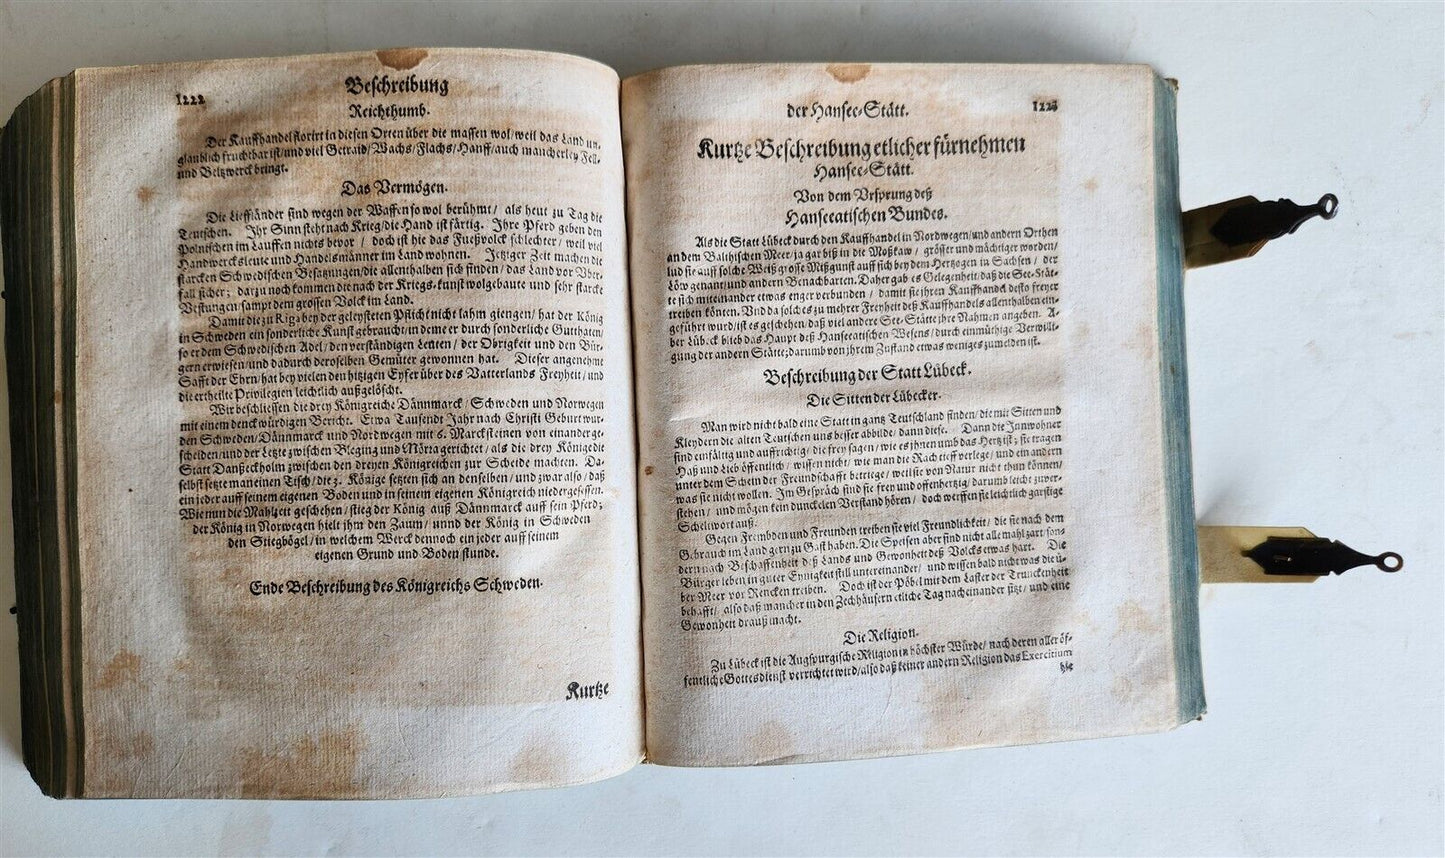 1222
Beschreibung
Reichthumb.
Der Kauffhandel florirt in diesen Orten über die massen wol/weil das Land un-
glaublich fruchtbar ist/und viel Getraid/Wachs/Flachs/Hanff/auch mancherley Fell-
und Beltzwerck bringt.
Das Vermögen.
Die Lieffländer sind wegen der Waffen so wol berühmt/ als heut zu Tag die
Teutschen. Ihr Sinn steht nach Krieg/die Hand ist färtig. Ihre Pferd geben den
Polnischen im Lauffen nichts bevor / doch ist hie das Fueßvolck schlechter/ weil viel
Handwercksleute und Handelsmänner im Land wohnen. Jetziger Zeit machen die
starcken Schwedischen Besatzungen/die allenthalben sich finden/ das Land vor Vber-
fall sicher; darzu noch kommen die nach der Kriegs-kunst wolgebaute und sehr starcke
Vestungen/sampt dem grossen Volck im Land.
Damit die zu Riga bey der geleysteten Pflicht nicht lahm giengen/ hat der König
in Schweden ein sonderliche Kunst gebraucht/in deme er durch sonderliche Gutthaten/
so er dem Schwedischen Adel/den verständigen Leuten / der Obrigkeit und den Bür-
gern erwiesen/und dadurch deroselben Gemüter gewonnen hat. Dieser angenehme
Safft der Ehrn/hat bey vielen den hitzigen Eyfer über des Vatterlands Freyheit/ und
die ertheilte Privilegien leichtlich außgelöscht.
Wir beschliessen die drey Königreiche Dännmarck/Schweden und Norwegen
mit einem denckwürdigen Bericht. Etwa Tausendt Jahr nach Christi Geburt wur-
den Schweden/Dännmarck und Nordwegen mit 6. Marcksteinen von einander ge-
scheiden/und der Letzte zwischen Bleging und Möra gerichtet/ als die drey Könige die
Statt Danßeckholm zwischen den dreyen Königreichen zur Scheide machten. Da-
selbst setzte man einen Tisch/die 3. Könige setzten sich an denselben/ und zwar also/ daß
ein jeder auff seinem eigenen Boden und in seinem eigenen Königreich niedergesessen.
Wie nun die Mahlzeit geschehen/ stieg der König auß Dännmarck auff sein Pferd;
der König in Norwegen hielt jhm den Zaum/ unnd der König in Schweden
den Stiegbögel/ in welchem Werck dennoch ein jeder auff seinem
eigenen Grund und Boden stunde.
Ende Beschreibung des Königreichs Schweden.
Kurtze
der Hansee-Stätt.
1223
Kurtze Beschreibung etlicher fürnehmen
Hansee-Stätt.
Von dem Vrsprung deß
Hanseeatischen Bundes.
Als die Statt Lübeck durch den Kauffhandel in Nordwegen/und andern Orthen
an dem Balthischen Meer/ja gar biß in die Moßkaw / grösser und mächtiger worden/
lud sie auff solche Weiß grosse Mißgunst auff sich bey dem Hertzogen in Sachsen / der
Löw genant/und andern Benachbarten. Daher gab es Gelegenheit/daß die See-Stät-
te sich miteinander etwas enger verbunden / damit sie jhren Kauffhandel desto freyer
treiben könten. Vnd da solches zu mehrer Freyheit deß Kauffhandels allenthalben ein-
geführt wurd/ist es geschehen/daß viel andere See-Stätte jhre Nahmen angeben. A-
ber Lübeck blieb das Haupt deß Hanseeatischen Wesens/durch einmüthige Verwilli-
gung der andern Stätte;darumb von jhrem Zustand etwas weniges zu melden ist.
Beschreibung der Statt Lübeck.
Die Sitten der Lübecker.
Man wird nicht bald eine Statt in gantz Teutschland finden/die mit Sitten und
Kleydern die alten Teutschen uns besser abbilde/dann diese. Dann die Innwohner
sind einfältig und auffrichtig/ die frey sagen/wie es jhnen umb das Hertz ist; sie tragen
Haß und Lieb öffentlich / wissen nicht/ wie man die Rach tieff verlege / und ein andern
unter dem Schein der Freundschafft betriege/weil sie von Natur nicht thun können/
was sie nicht wollen. Im Gespräch sind sie frey und offenhertzig/darumb leicht zu ver-
stehen/ und mögen kein dunckelen Verstand hören/ doch werffen sie leichtlich garstige
Scheltwort auß.
Gegen Frembden und Freunden treiben sie viel Freundlickeit/ die sie nach dem
Gebrauch im Land gern zu Gast haben. Die Speisen aber sind nicht allemahl zart/son-
dern nach Beschaffenheit deß Lands und Gewonheit deß Volcks etwas hart. Die
Bürger leben in guter Eynigkeit still untereinander/ und wissen bald nicht was die ü-
ber Meer vor Rencken treiben. Doch ist der Pöbel mit dem Laster der Trunckenheit
behafft/ also daß mancher in den Zechhäusern etliche Tag nacheinander sitzt/ und eine
Gewonheit drauß macht.
Die Religion.
Zu Lübeck ist die Augspurgische Religion in höchster Würde/ nach deren aller öf-
fentliche Gottesdienst verrichtet wird/also daß keiner andern Religion das Exercitium
hie